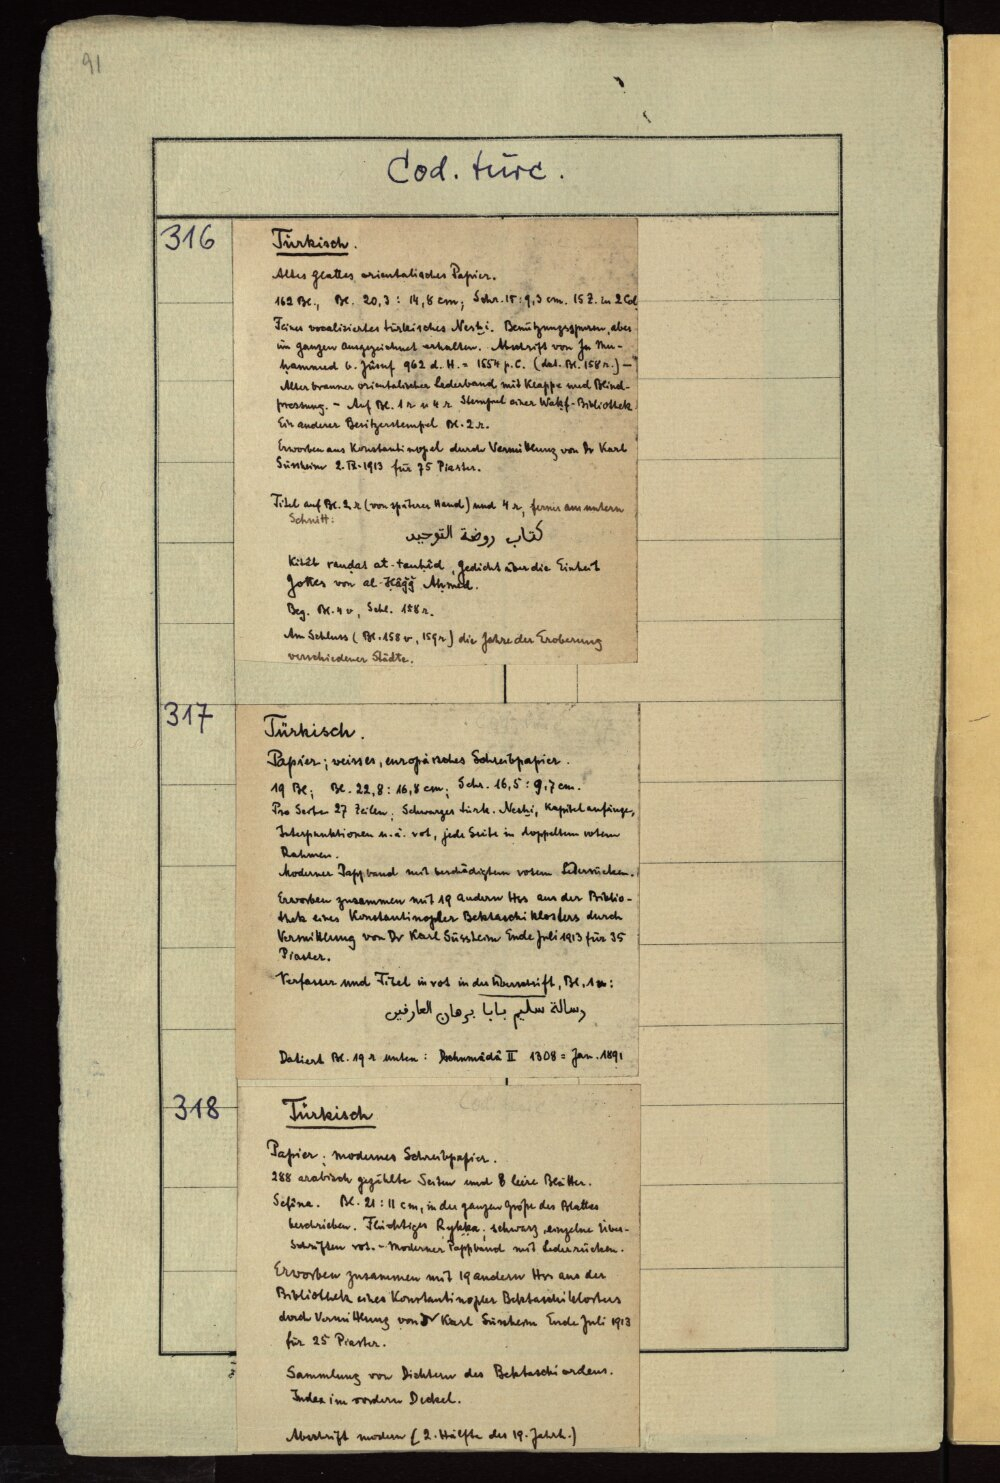 91
Cod. turc.
316
Türkisch.
Altes glattes orientalisches Papier.
162 Bl., Bl. 20,3 : 14,8 cm; Schr. 15 : 9,3 cm. 15 Z. in 2 Col
Feines vocalisiertes türkisches Nesḫi. Benützungsspuren, aber
im ganzen ausgezeichnet erhalten. Abschrift von Mu-
hammed b. Jūsuf 962 d. H. = 1554 p. C. (dat. Bl. 158 r.) —
Alter brauner orientalischer Lederband mit Klappe und Blind-
pressung. – Auf Bl. 1 r u 4 r Stempel einer Waḳf-Bibliothek
Ein anderer Besitzerstempel Bl. 2 r.
Erworben aus Konstantinopel durch Vermittlung von Dr Karl
Süssheim 2. IX. 1913 für 75 Piaster.
Titel auf Bl. 2 r (von späterer Hand) und 4 r, ferner am untern
Schnitt:
كتاب روضة التوحيد
Kitāb rauḍat at-tauḥīd, Gedicht über die Einheit
Gottes von al-Ḥāǧǧ Aḥmed.
Beg. Bl. 4 v, Schl. 158 r.
Am Schluss (Bl. 158 v, 159 r) die Jahre der Eroberung
verschiedener Städte.
317
Türkisch.
Papier; weisses, europäisches Schreibpapier.
19 Bl; Bl. 22,8 : 16,8 cm; Schr. 16,5 : 9,7 cm.
Pro Seite 27 Zeilen; Schwarzes türk. Nesḫi, Kapitelanfänge,
Interpunktionen u. ä. rot, jede Seite in doppeltem rotem
Rahmen.
Moderner Pappband mit beschädigtem rotem Lederrücken.
Erworben zusammen mit 19 andern Hss aus der Biblio-
thek eines Konstantinopler Bektaschiklosters durch
Vermittlung von Dr Karl Süssheim Ende Juli 1913 für 35
Piaster.
Verfasser und Titel in rot in der Überschrift, Bl. 1 v:
رسالة سليم بابا برهان العارفين
Datiert Bl. 19 r unten: Dschumādā II 1308 = Jan. 1891
318
Türkisch
Papier; modernes Schreibpapier.
288 arabisch gezählte Seiten und 8 leere Blätter.
Sefīna. Bl. 21 : 11 cm, in der ganzen Größe des Blattes
beschrieben. Flüchtiges Ryḳʿa; schwarz, einzelne Über-
schriften rot. – Moderner Pappband mit Lederrücken.
Erworben zusammen mit 19 andern Hss aus der
Bibliothek eines Konstantinopler Bektaschiklosters
durch Vermittlung von Dr Karl Süssheim Ende Juli 1913
für 25 Piaster.
Sammlung von Dichtern des Bektaschiordens.
Index im vordern Deckel.
Abschrift modern (2. Hälfte des 19. Jahrh.)